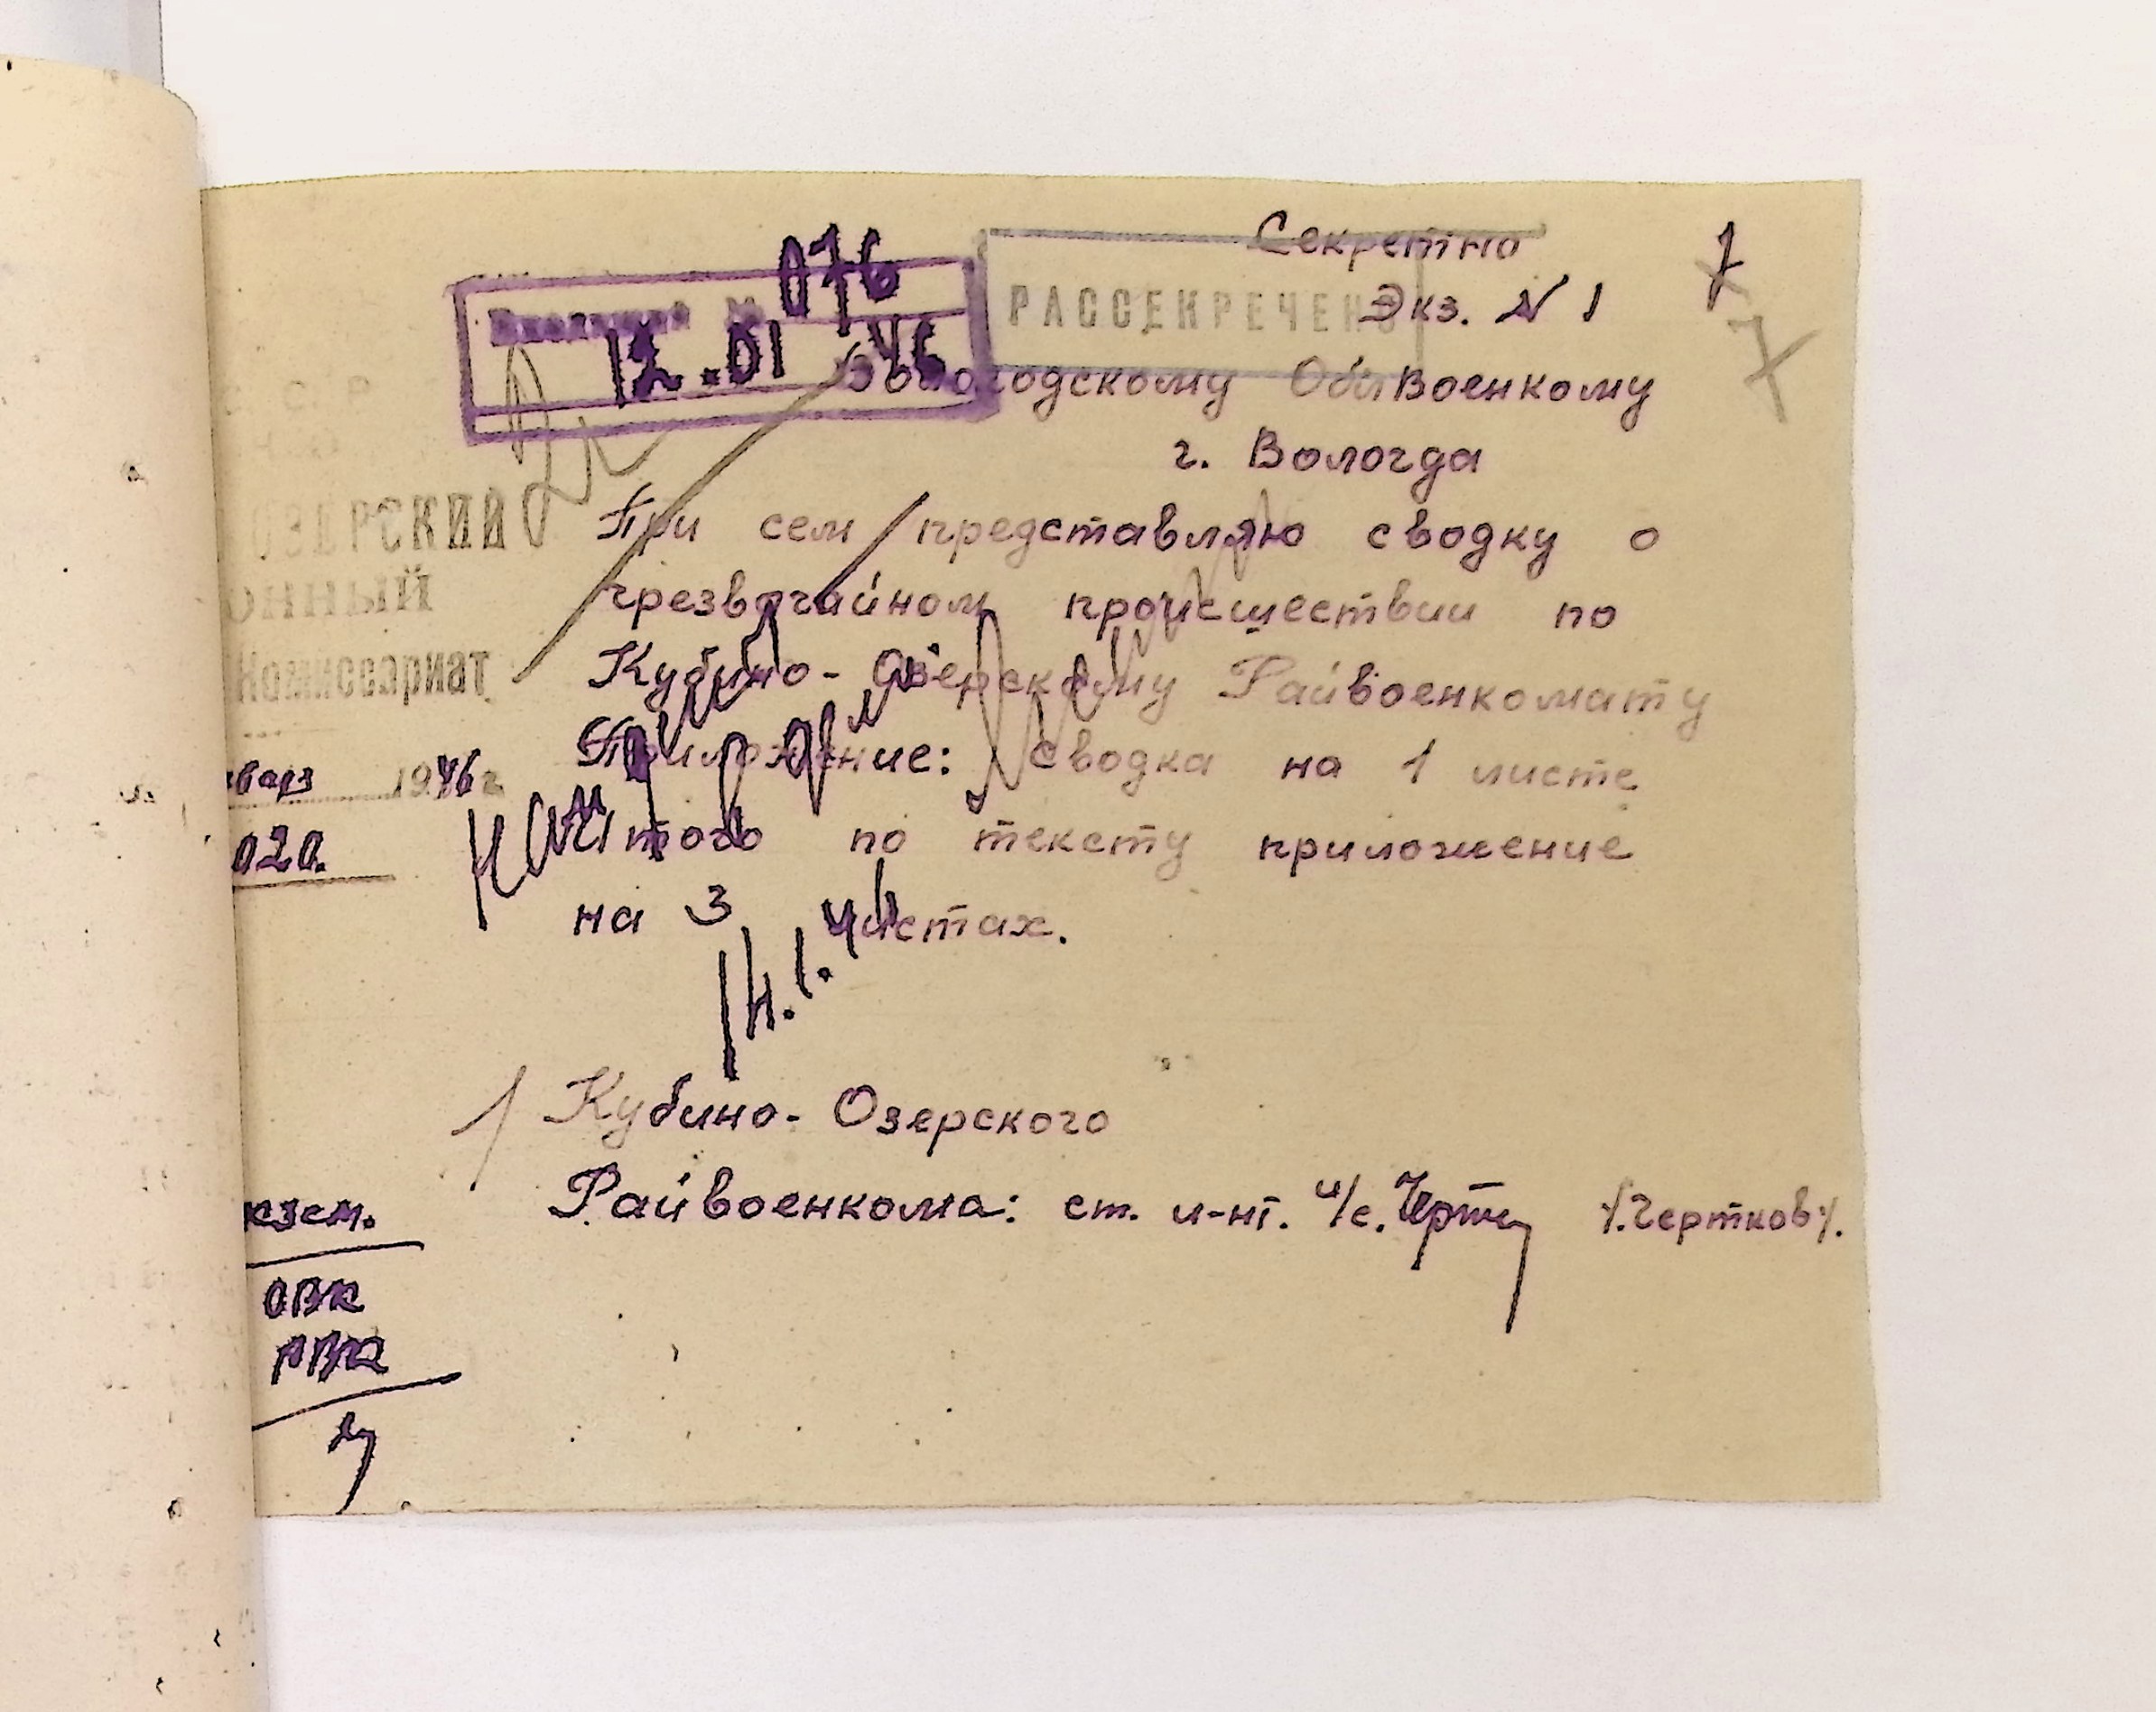 Секретно
Экз. N 1
РАССЕКРЕЧЕНО
Входящий №
076
12.01 46
Вологодскому Облвоенкому
г. Вологда
С С Р
ОЗЕРСКИЙ
ОННЫЙ
Комиссариат
варя 1946 г
020.
При сем представляю сводку о
чрезвычайном происшествии по
Кубино-Озерскому Райвоенкомату
Приложение: Сводка на 1 листе
Итого по тексту приложение
на 3 листах.
Кубино-Озерского
Райвоенкома: ст. и-нт. и/с. /.Чертков/.
кзем.
ОВК
РВК